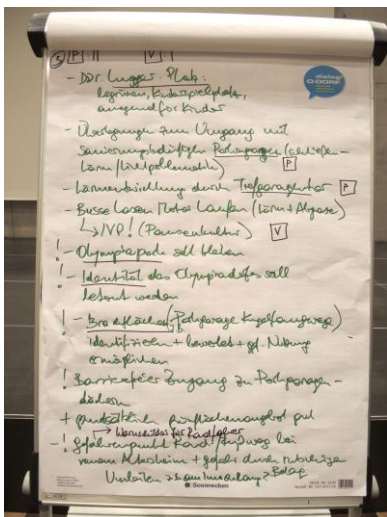 5 P V
- DDr. Lugger-Platz:
begrünen, Kinderspielplatz,
für Kinder
- Überlegungen zum Umgang mit
sanierungsbedürftigen Parkgaragen (schließen -
Lärm/Lichtproblematik) P
- Lärmentwicklung durch Tiefgaragentor P
- Busse lassen Motor laufen (Lärm + Abgase)
↳ IVB! (Pausenkultur) V
! - Olympiapark soll bleiben
! - Identität des Olympiadorfes soll
betont werden
! - Brachflächen (Parkgarage Kugelfangweg)
identifizieren + + ggf. Nutzung
ermöglichen
! Barrierefreier Zugang zu Parkgaragen-
dächern
+ grundsätzlich Grünflächenangebot gut
→ für Radfahrer
- ! Gefahrenpunkt Rad/Fußweg bei
neuem Altersheim + Gefahr durch rutschigen
Belag
dialog
O-DORF
Soennecken